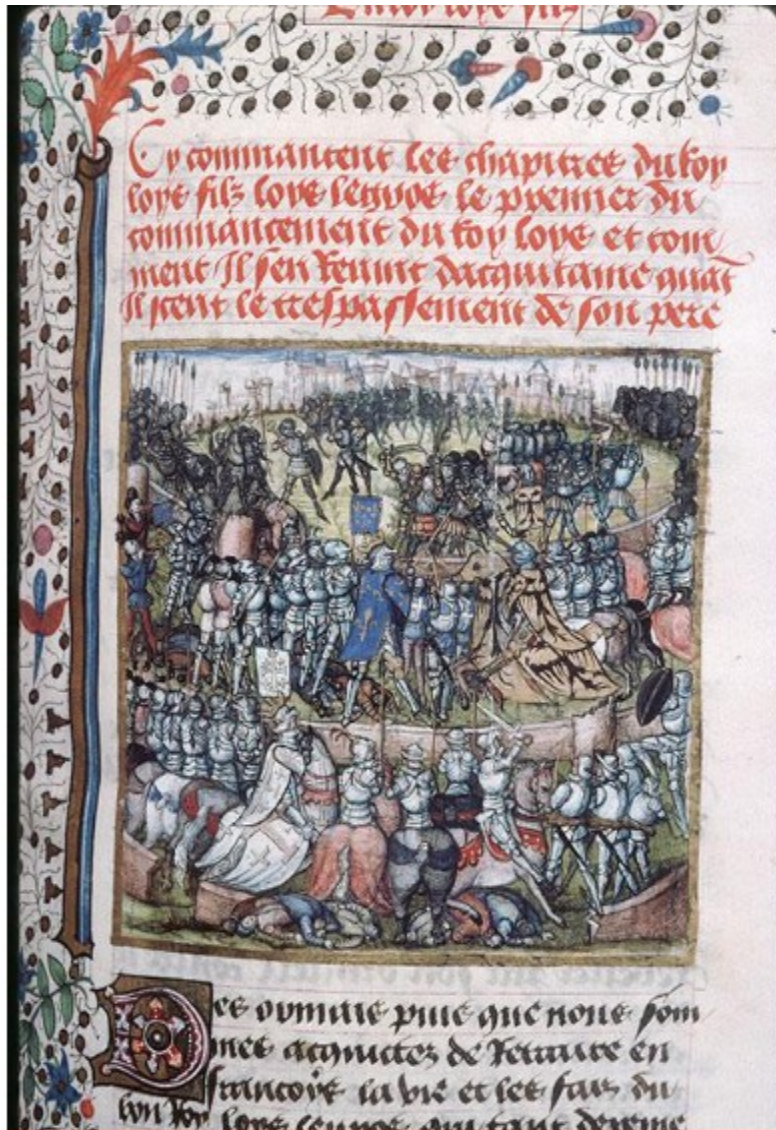 Cy commancent les chapitres du roy
loys filz loys legros le premier du
commancement du roy loys et com
ment Il sen Reuint dacquitaine quāt
Il sceut le trespassement de son pere
es ormais puis que nous som
mes acquictez de Retraire en
francoys la vie et les fais du
bon Roy loys legros qui tant